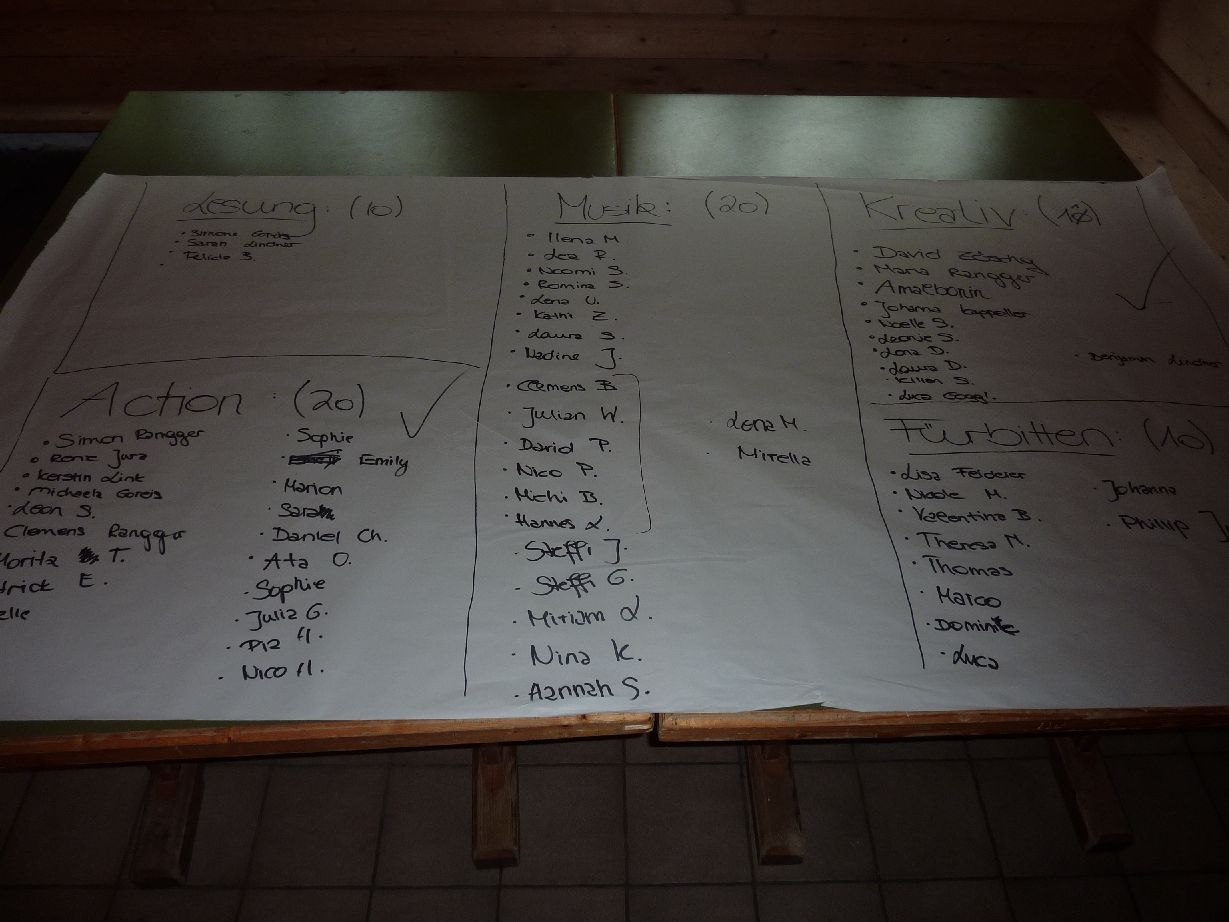 Lesung: (10)
• Simone Goreis
• Sarah Lindner
• Felicia S.
Action: (20)
• Simon Rangger
• Rene Jura
• Kerstin Link
• Michaela Goreis
• Leon S.
Clemens Rangger
Moritz T.
trick E.
elle
• Sophie
• Emily
• Marion
• Sarah
• Daniel Ch.
• Ata O.
• Sophie
• Julia G.
• Pia H.
• Nico H.
Musik: (20)
• Ilena M
• Lea R.
• Noomi S.
• Romina S.
• Lena U.
• Kathi Z.
• Laura S.
• Nadine J.
• Clemens B
• Julian W.
• David P.
• Nico P.
• Michi B.
• Hannes L.
• Steffi J.
• Steffi G.
• Miriam L.
• Nina K.
• Hannah S.
• Lena M.
• Mirella
Kreativ: (18)
• David
• Maria Rangger
• Johanna Kappeller
• Noelle S.
• Leonie S.
• Lena D.
• Laura D.
• Kilian S.
• Luca
• Benjamin Lindner
Fürbitten: (10)
• Lisa Felderer
• Nicole M.
• Valentina B.
• Theresa M.
• Thomas
• Marco
• Dominik
• Luca
• Johanna
• Philipp J